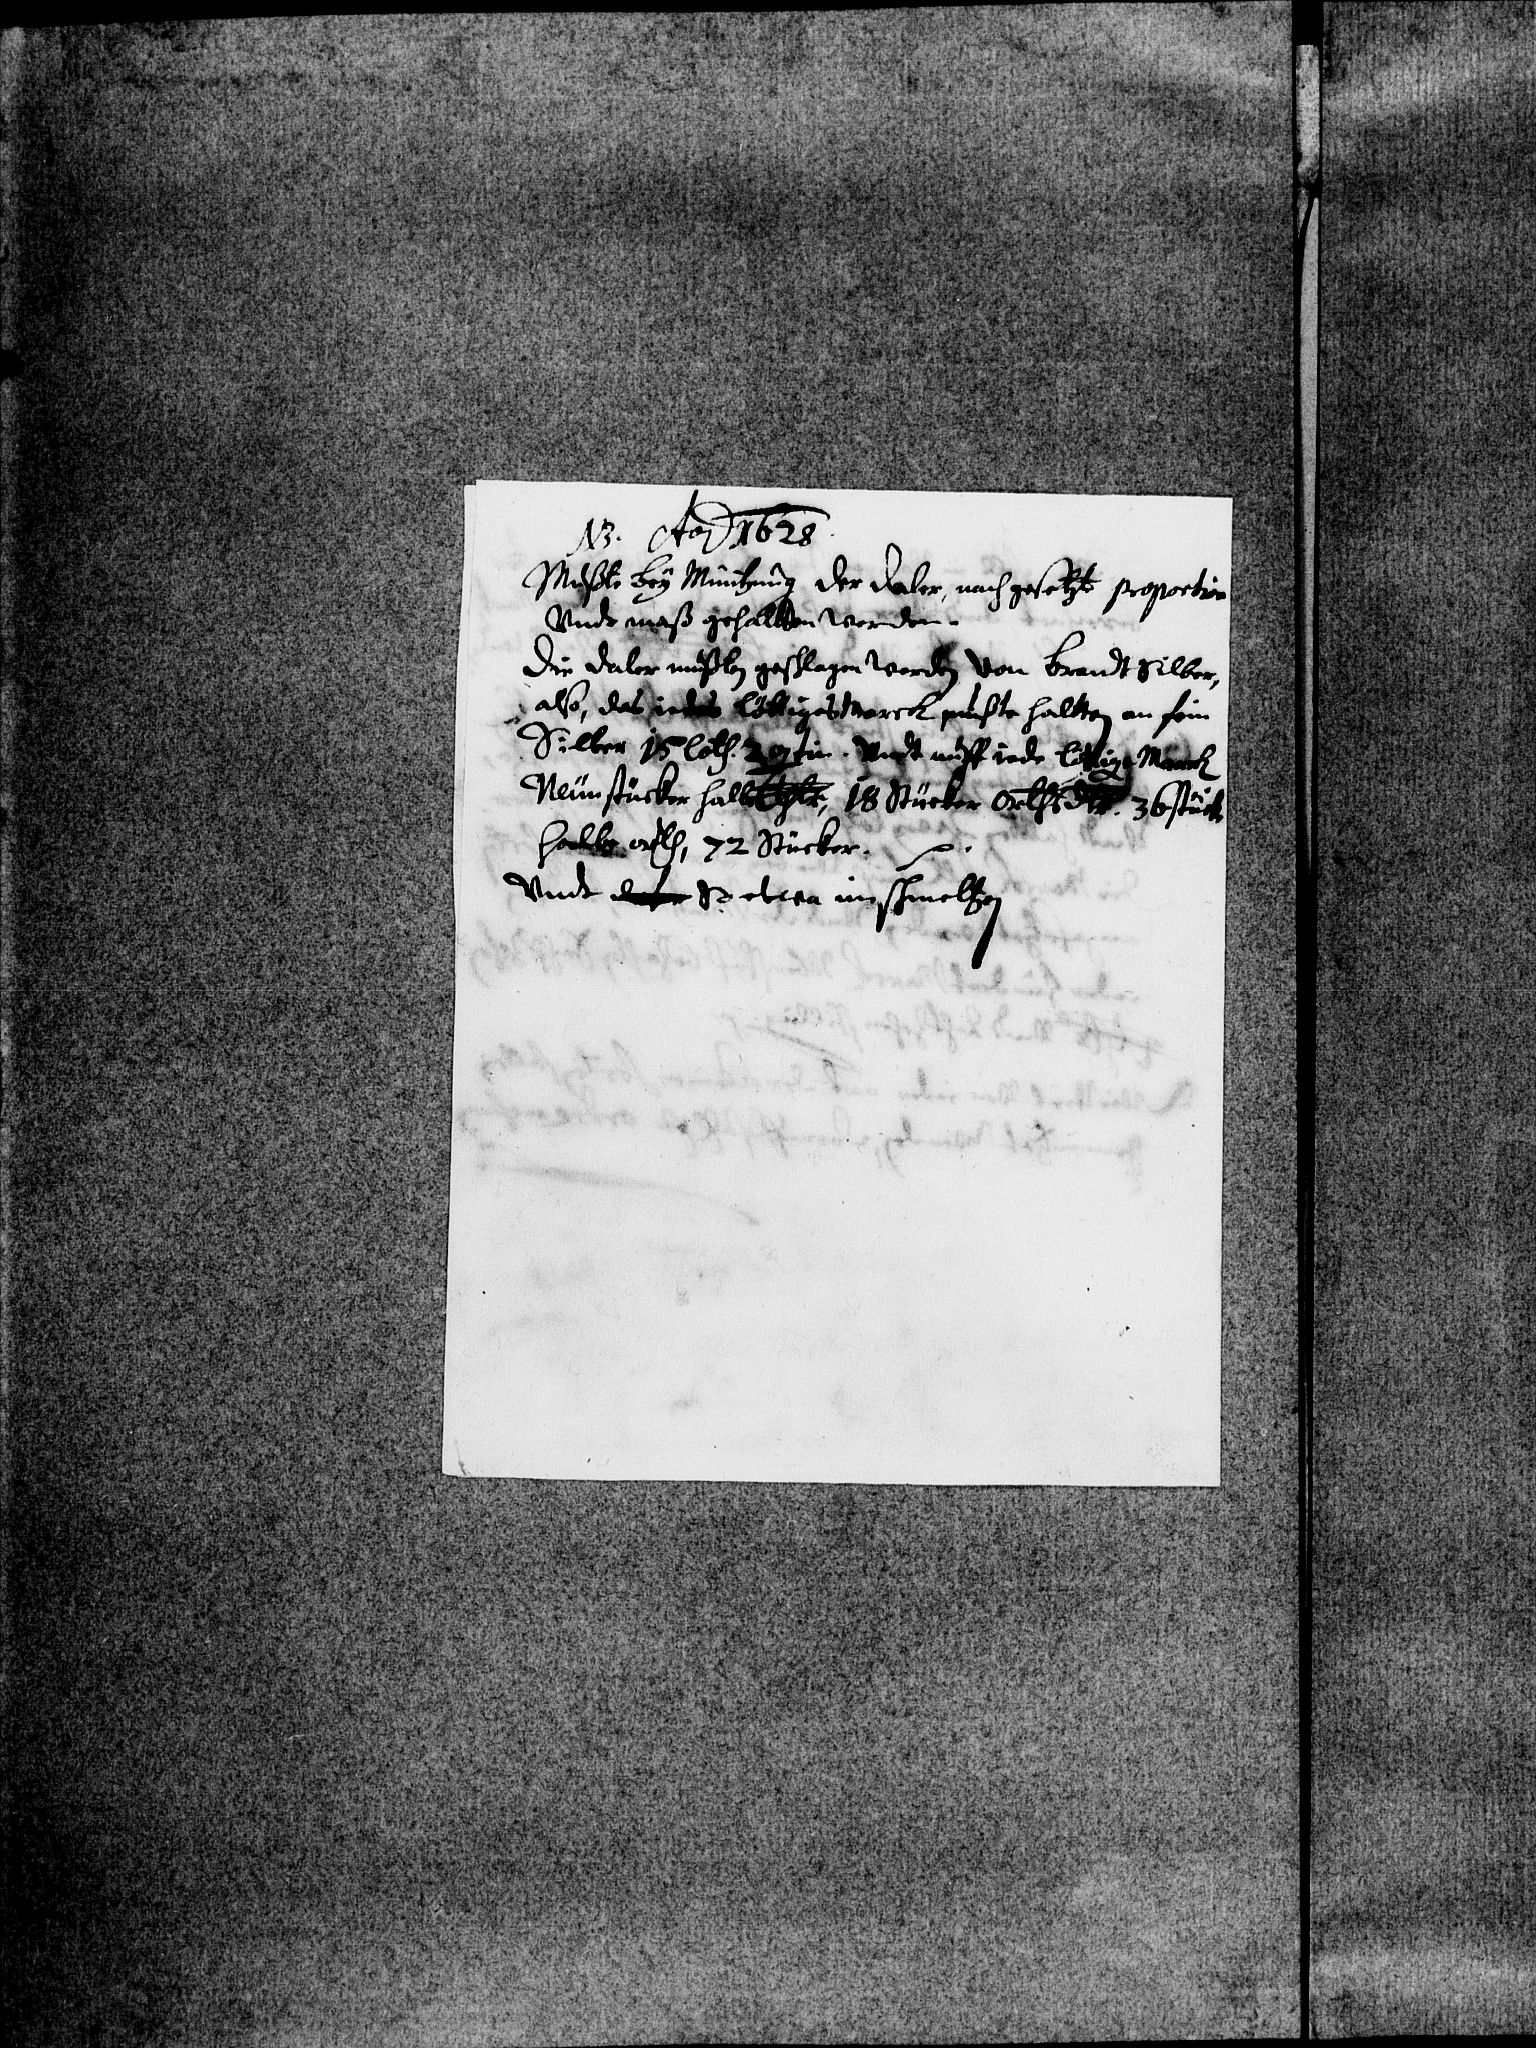 NB. Ao 1628.
Mußte bey Müntzung der daler, nach gesetzte proportion
Undt maß gehaltten werden.
Die daler mußten geschlagen werden von brandt Silber,
also, das iedes löttiges Marck mußte haltten an fein
Silber 15 loth. 2 gtin. Undt muß iede löttige Marck
Neün stücker halb, 18 Stücker orths dlr. 36 stück
halbe orth, 72 Stücker.
Undt in schmeltzen